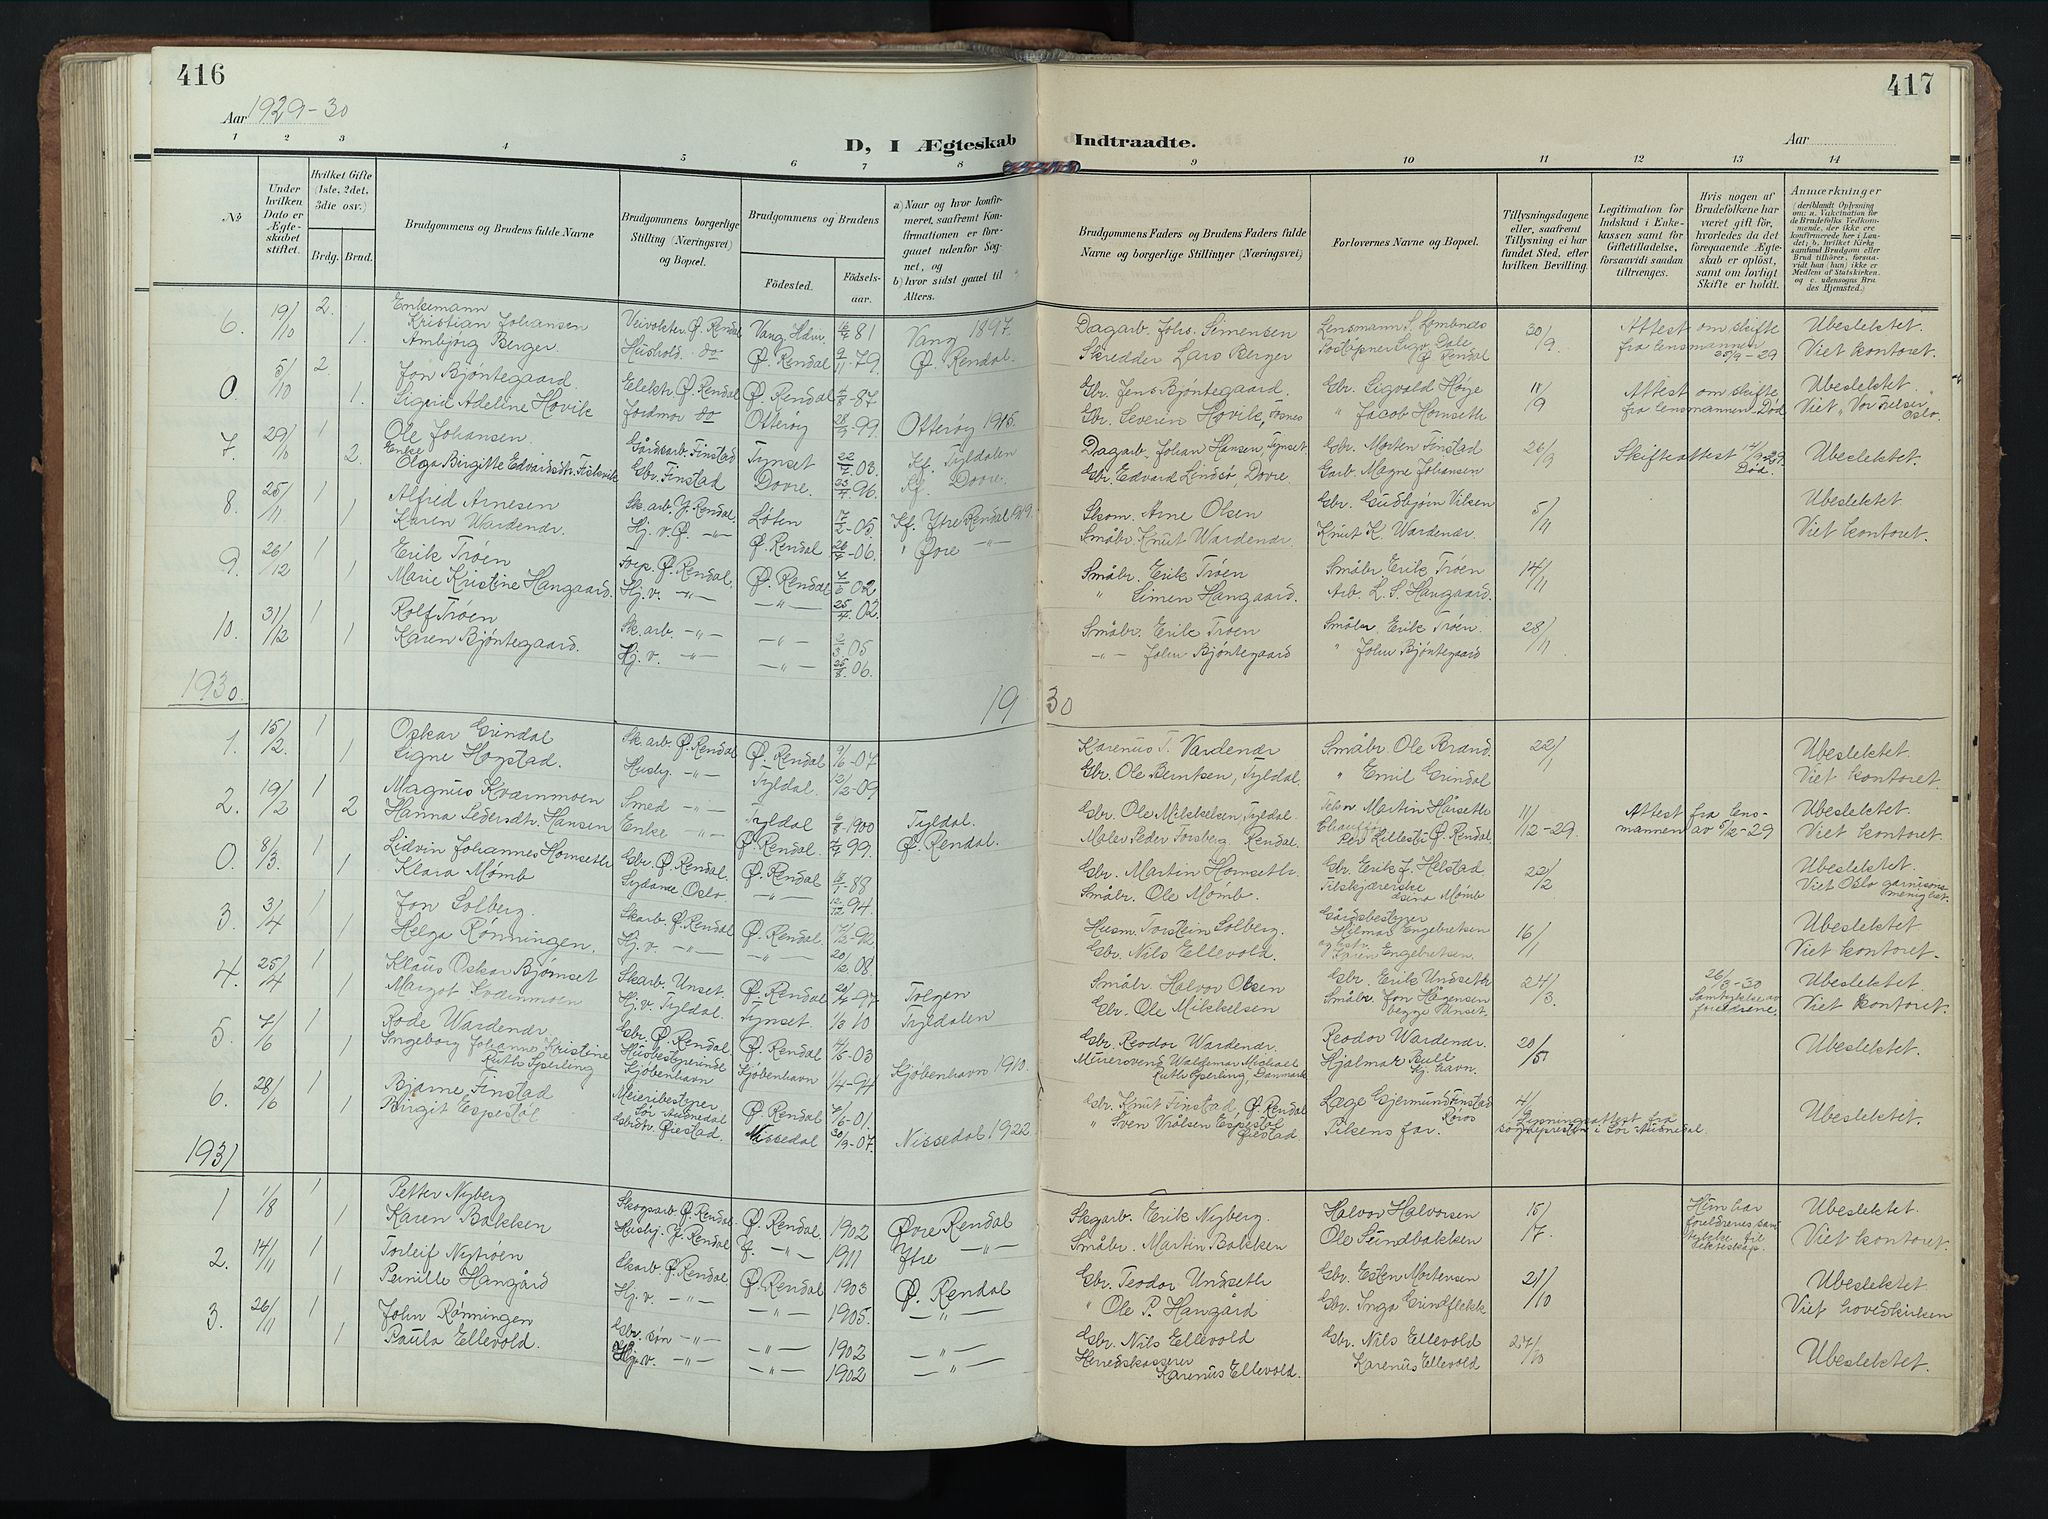 416
Aar 1929-30
D, I Ægteskab
1 2 3 4 5 6 7 8
No
Under hvilken Dato er Ægteskabet stiftet.
Hvilket Gifte (1ste, 2det, 3die osv.)
Brdg. Brud.
Brudgommens og Brudens fulde Navne
Brudgommens borgerlige Stilling (Næringsvei) og Bopæl.
Brudgommens og Brudens
Fødested. Fødselsaar.
a) Naar og hvor konfirmeret, saafremt Konfirmationen er foregaaet udenfor Sognet, og
b) hvor sidst gaaet til Alters.
6. 19/10 2. Enkemann
Kristian Johansen Veivokter Ø. Rendal Vang Hdm. 81 Vang 1897.
1. Ambjørg Berger Hushold. do Ø. Rendal 9/11 79. Ø. Rendal.
0 5/10 2. Jon Bjøntegaard. Elektr. Ø. Rendal Ø. Rendal 87
1. Sigrid Adeline Hovik Jordmor do Otterøy 99 Otterøy 1915.
7. 29/10 1 Ole Johansen. Gårdsarb. Finstad Tynset 03 Kf. Tyldalen
Enke
2. Olga Birgitte Edvardsdtr. Fiskvik Gbr. Finstad Dovre. 96 Kf. Dovre.
8. 25/11 1 Alfred Arnesen Sk. arb. Y. Rendal. Løten 17/2-05. Kf. Ytre Rendal 1919.
1 Karen Wardenær. Hj. v. Ø. -"- Ø. Rendal 06. " Øvre -"-
9. 26/12 1 Erik Trøen Forp. Ø. Rendal, Ø. Rendal 02
1 Marie Kristine Hangaard. Hj. v. -"- -"- 25/4 02
10. 31/12 1 Rolf Trøen Sk. arb. -"- -"- 2/3 05
1 Karen Bjøntegaard. Hj. v. -"- -"- 25/8 06.
1930. 19
1. 15/2. 1 Oskar Grindal Sk. arb. Ø. Rendal Ø. Rendal 9/6-07
1 Signe Hogstad. Husby. -"- Tyldal. 12/2-09
2. 19/2 1 Magnus Kværnmoen Smed -"- Tyldal 6/8-1900 Tyldal.
2 Hanna Pedersdtr. Hansen Enke -"- Ø. Rendal 99. Ø. Rendal.
0. 8/3 1 Lidvin Johannes Hornseth Gbr. Ø. Rendal Ø. Rendal 88
1 Klara Mømb Sydame Oslo -"- 94.
3 3/4 1 Jon Solberg. Skarb. Ø. Rendal Ø. Rendal. 17/12-92
1 Helga Rønningen. Hj. v. -"- -"- 20/12 08.
4. 25/4 1 Klaus Oskar Bjørnset Skarb. Unset. Ø. Rendal 20/4-97 Tolgen
1 Margot Kværnmoen Hj. v. Tyldal. Tynset 1/3 10 Tyldalen
5. 7/6 1 Rode Wardenær Gbr. Ø. Rendal. Ø. Rendal 4/5-03
1 Ingeborg Johanne Kristine Ruth Sperling Husbestyrerinde Kjøbenhavn Kjøbenhavn 1/4-94 Kjøbenhavn 1910.
6. 28/6 1 Bjarne Finstad Meieribestyrer Sør Audnedal Ø. Rendal 7/6-01.
1 Birgit Espestøl Gbrdtr. Øiestad. Nissedal 30/9-07. Nissedal 1922
1931
1 1/8 1 Petter Nyberg Skogsarb. Ø. Rendal Ø. Rendal. 1902 Øvre Rendal
1 Karen Bakken Husbj. Y. Rendal Y. -"- 1911 Ytre -"-
2. 14/11 1 Torleif Nytrøen Skarb. Ø. Rendal Ø. Rendal 1903 Ø. Rendal
1 Pernille Hangård Hj. v. -"- -"- 1905. -"-
3. 26/11 1 John Rønningen Gbr. søn -"- -"- 1902 -"-
1 Paula Ellevold. Hj. v. -"- -"- 1902 -"-
417
Indtraadte.
Aar
9 10 11 12 13 14
Brudgommens Faders og Brudens Faders fulde Navne og borgerlige Stillinger (Næringsvei)
Forlovernes Navne og Bopæl.
Tillysningsdagene eller, saafremt Tillysning ei har fundet Sted, efter hvilken Bevilling.
Legitimation for Indskud i Enkekassen samt for Giftetilladelse, forsaavidt saadan tiltrænges.
Hvis nogen af Brudefolkene har været gift før, hvorledes da det foregaaende Ægteskab er opløst, samt om lovligt Skifte er holdt.
Anmærkninger
(deriblandt Oplysning om: a. Vakcination for de Brudefolks Vedkommende, der ikke ere konfirmerede her i Landet; b. hvilket Kirkesamfund Brudgom eller Brud tilhører, forsaavidt han (hun) ikke er Medlem af Statskirken, og c. udensogns Brudes Hjemsted.)
Dagarb. Johs. Simensen Lensmann S. Lombnæs 30/9 Attest om skifte Ubeslektet.
Skredder Lars Berger Poståpner Sigv. Gale Ø. Rendal fra lensmannen 25/9-29 Viet kontoret.
Gbr. Jens Bjøntegaard. Gbr. Sigvald Høye 11/9 Attest om skifte Ubeslektet.
Gbr. Severin Hovik, Fosnes " Jacob Hornseth fra lensmannen. Død Viet "Vor Frelser" Oslo.
Dagarb. Johan Hansen, Tynset. Gbr. Morten Finstad 26/9 Skifteattest 4/9 29. Død. Ubeslektet.
Gbr. Edvard Lindsø, Dovre. Garb. Magne Johansen
Skom. Arne Olsen Gbr. Gudbjørn Vilsen 5/11 Ubeslektet
Småbr. Knut Wardenær. Knut K. Wardenær. Viet kontoret.
Småbr. Erik Trøen Småbr. Erik Trøen 14/11
" Simen Hangaard. Arb. L. S. Hangaard.
Småbr. Erik Trøen Småbr. Erik Trøen. 28/11
-"- John Bjøntegaard " John Bjøntegaard
30
Karenus T. Vardenær Småbr. Ole Brænd 22/1 Ubeslektet.
Gbr. Ole Berntsen, Tyldal. " Emil Grindal Viet kontoret.
Gbr. Ole Mikkelsen Tyldal. Martin Hårseth 11/12-29. Attest fra lensmannen av 5/12-29 Ubeslektet.
Maler Peder Torsberg, Rendal. Chauffør Per Lillebo Ø. Rendal Viet kontoret.
Gbr. Martin Hornseth. Gbr. Erik J. Helstad 22/2 Ubeslektet.
Småbr. Ole Mømb. Tilskjærerske Mømb Viet Oslo garnisonsmenighet.
Husm. Torstein Solberg. Gårdsbestyrer Hilmar Engebretsen 16/1 Ubeslektet
Gbr. Nils Ellevold. og hstr. Karen Engebretsen. Viet kontoret.
Småbr. Halvor Olsen Gbr. Erik Undseth 24/3. 26/3-30 Samtykke av foreldrene. Ubeslektet.
Gbr. Ole Mikkelsen Småbr. Jon Hågensen begge Unset. Viet kontoret.
Gbr. Reodor Wardenær. Reodor Wardenær. 20/5 Ubeslektet.
Murersvend Waldemar Michael Ruth Sperling, Danmark Hjalmar Bull Kj. havn.
Gbr. Knut Finstad, Ø. Rendal Læge Gjermund Finstad Røros 4/6 Ubeslektet.
" Sven Vrålsen Espestøl Øiestad. Pikens far. Lysningsattest fra sogneprestn i Sør-Audnedal.
Skgarb. Erik Nyberg. Halvor Halvorsen 15/7. Hun har foreldrenes samtykke til ekteskap. Ubeslektet.
Småbr. Martin Bakken Ole Sundbakken Viet kontoret.
Gbr. Teodor Undseth Gbr. Esten Mortensen 21/10 Ubeslektet.
" Ole P. Hangård Gbr. Inga Grindflekk Viet hovedkirken
Gbr. Nils Ellevold Gbr. Nils Ellevold 27/10 Ubeslektet.
Herredskasserer Karenus Ellevold. Karenus Ellevold